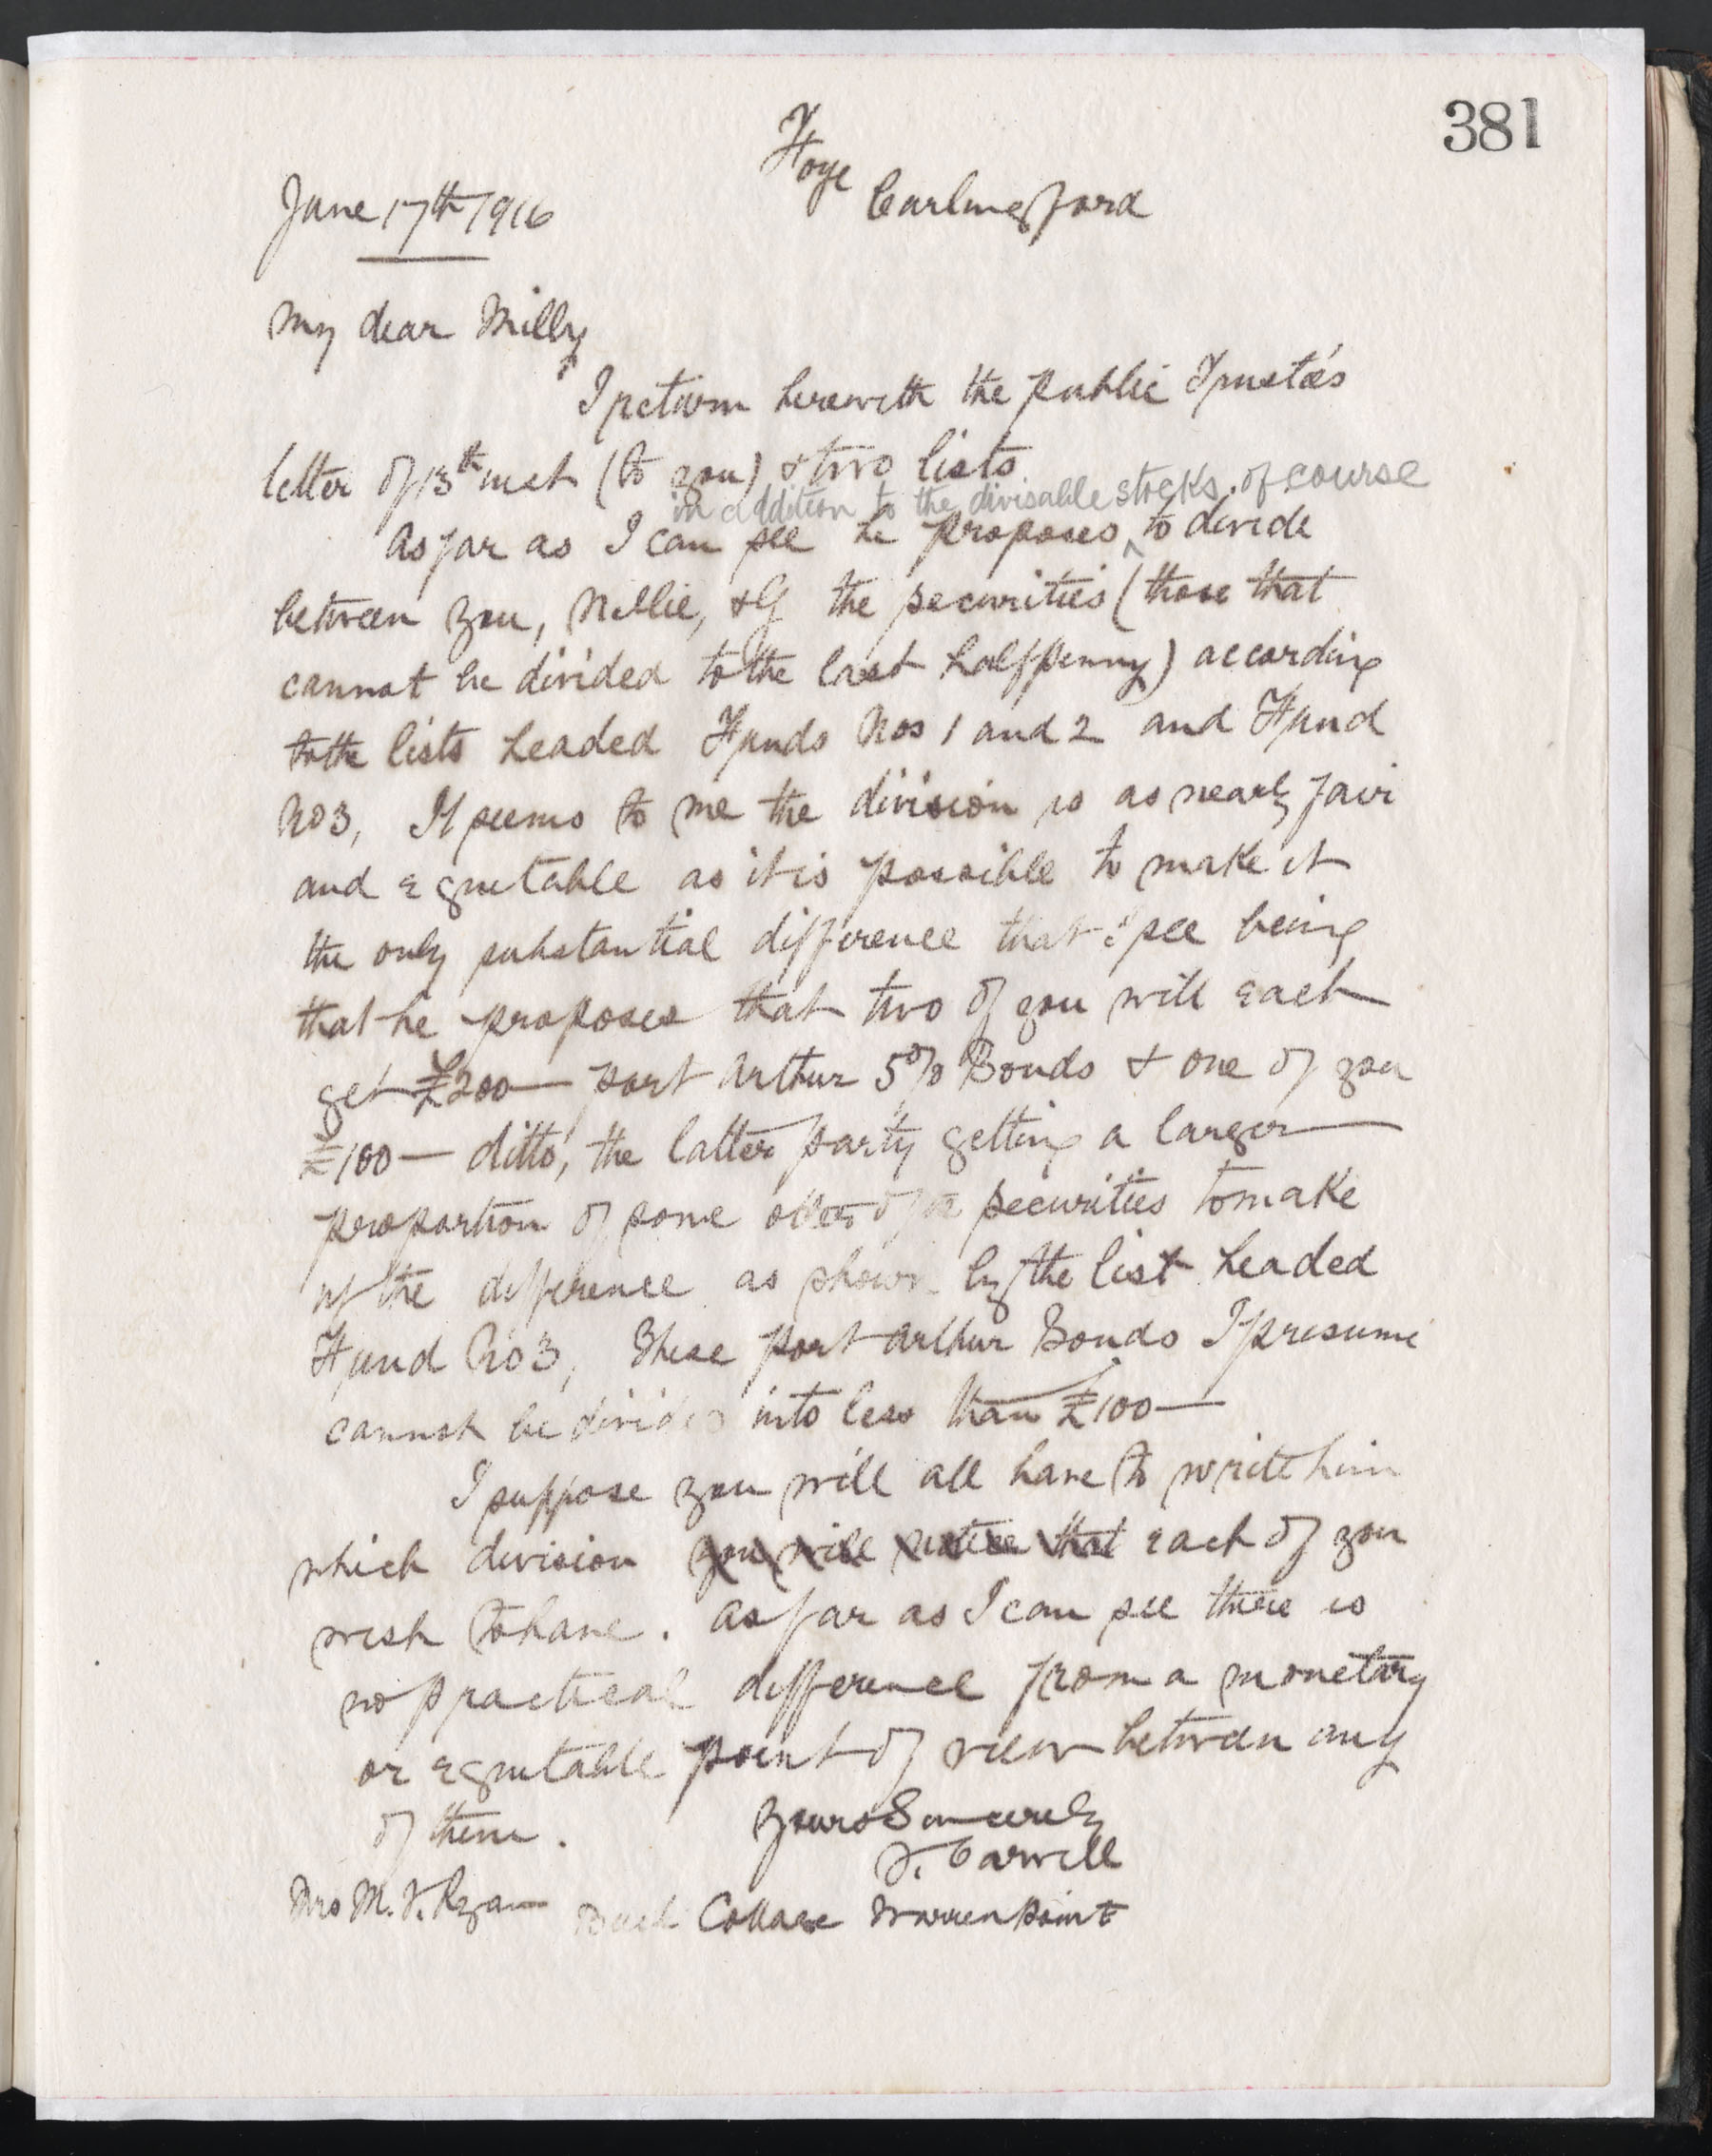 381
Foye
Carlingford
June 17th 1916
My dear Milly
I return herewith the public Trustee's
letter of 13th inst (to you) & two lists
in addition to the divisable stocks, of course
As far as I can see he proposes ^ to divide
between you, Nellie, & G the securities (those that
cannot be divided to the last halfpenny) according
to the lists headed Funds Nos 1 and 2 and Fund
No 3, It seems to me the division is as nearly fair
and equitable as it is possible to make it
the only substantial difference that I see being
that he proposes that two of you will each
get £200 — Port Arthur 5% Bonds & one of you
£100 — ditto, the latter party getting a larger
proportion of some other of the securities to make
up the difference as shown by the list headed
Fund No 3, These Port Arthur Bonds I presume
cannot be divided into less than £100 —
I suppose you will all have to write him
which division you will notice that each of you
wish to have. As far as I can see there is
no practical difference from a monetary
or equitable point of view between any
of them.
Yours Sincerely
F. Carvill
Mrs M. J. Ryan Cottage Warrenpoint